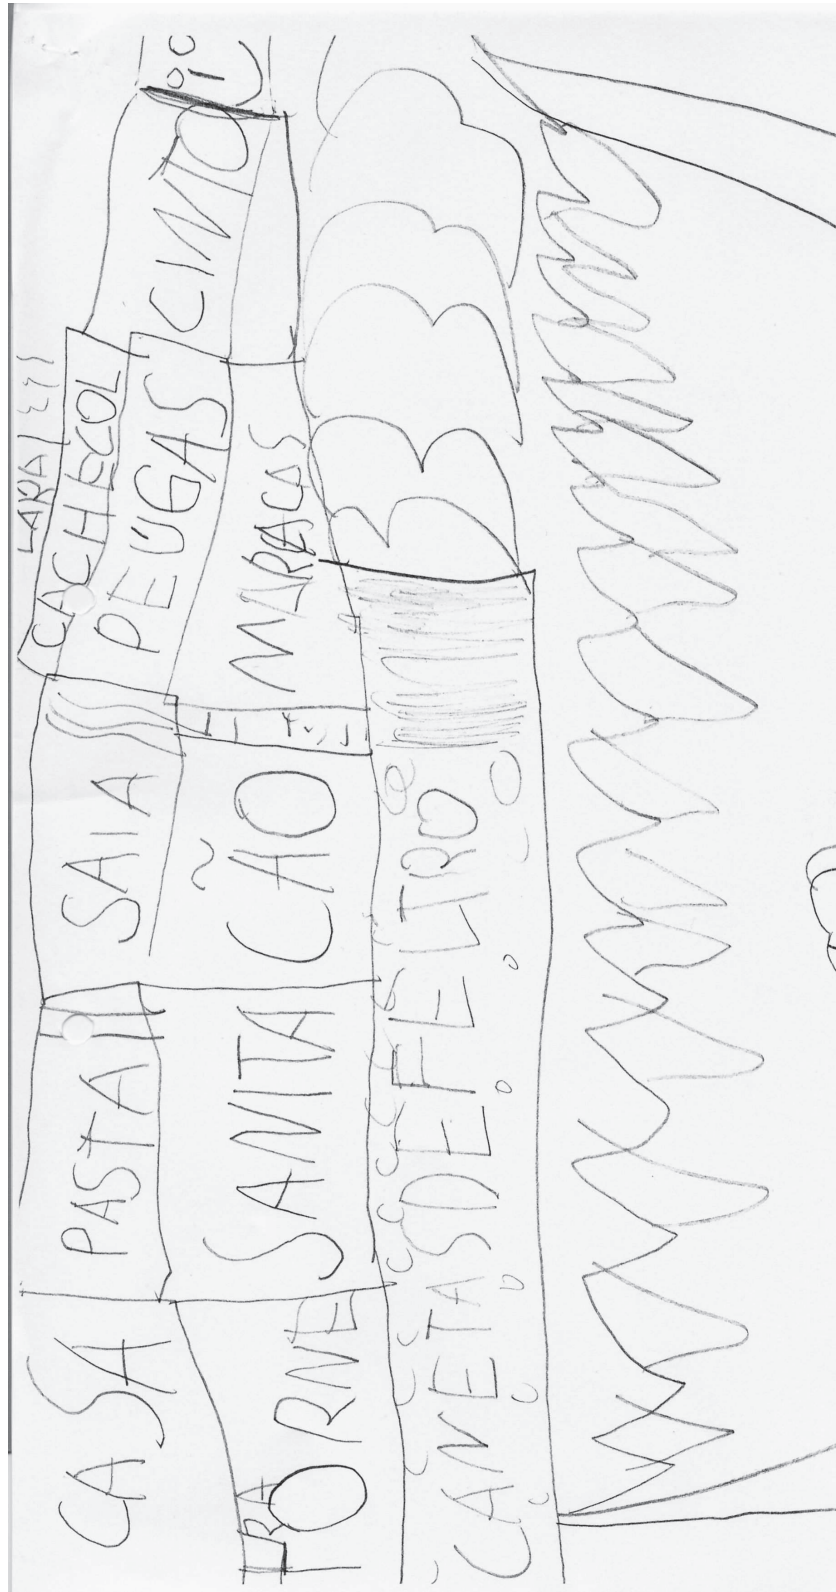 LARA
CACHECOL
CASA PASTA SAIA PEÚGAS CINTO
TORNE
IRA
SANITA CÃO MARACAS
CANETAS DE FELTRO